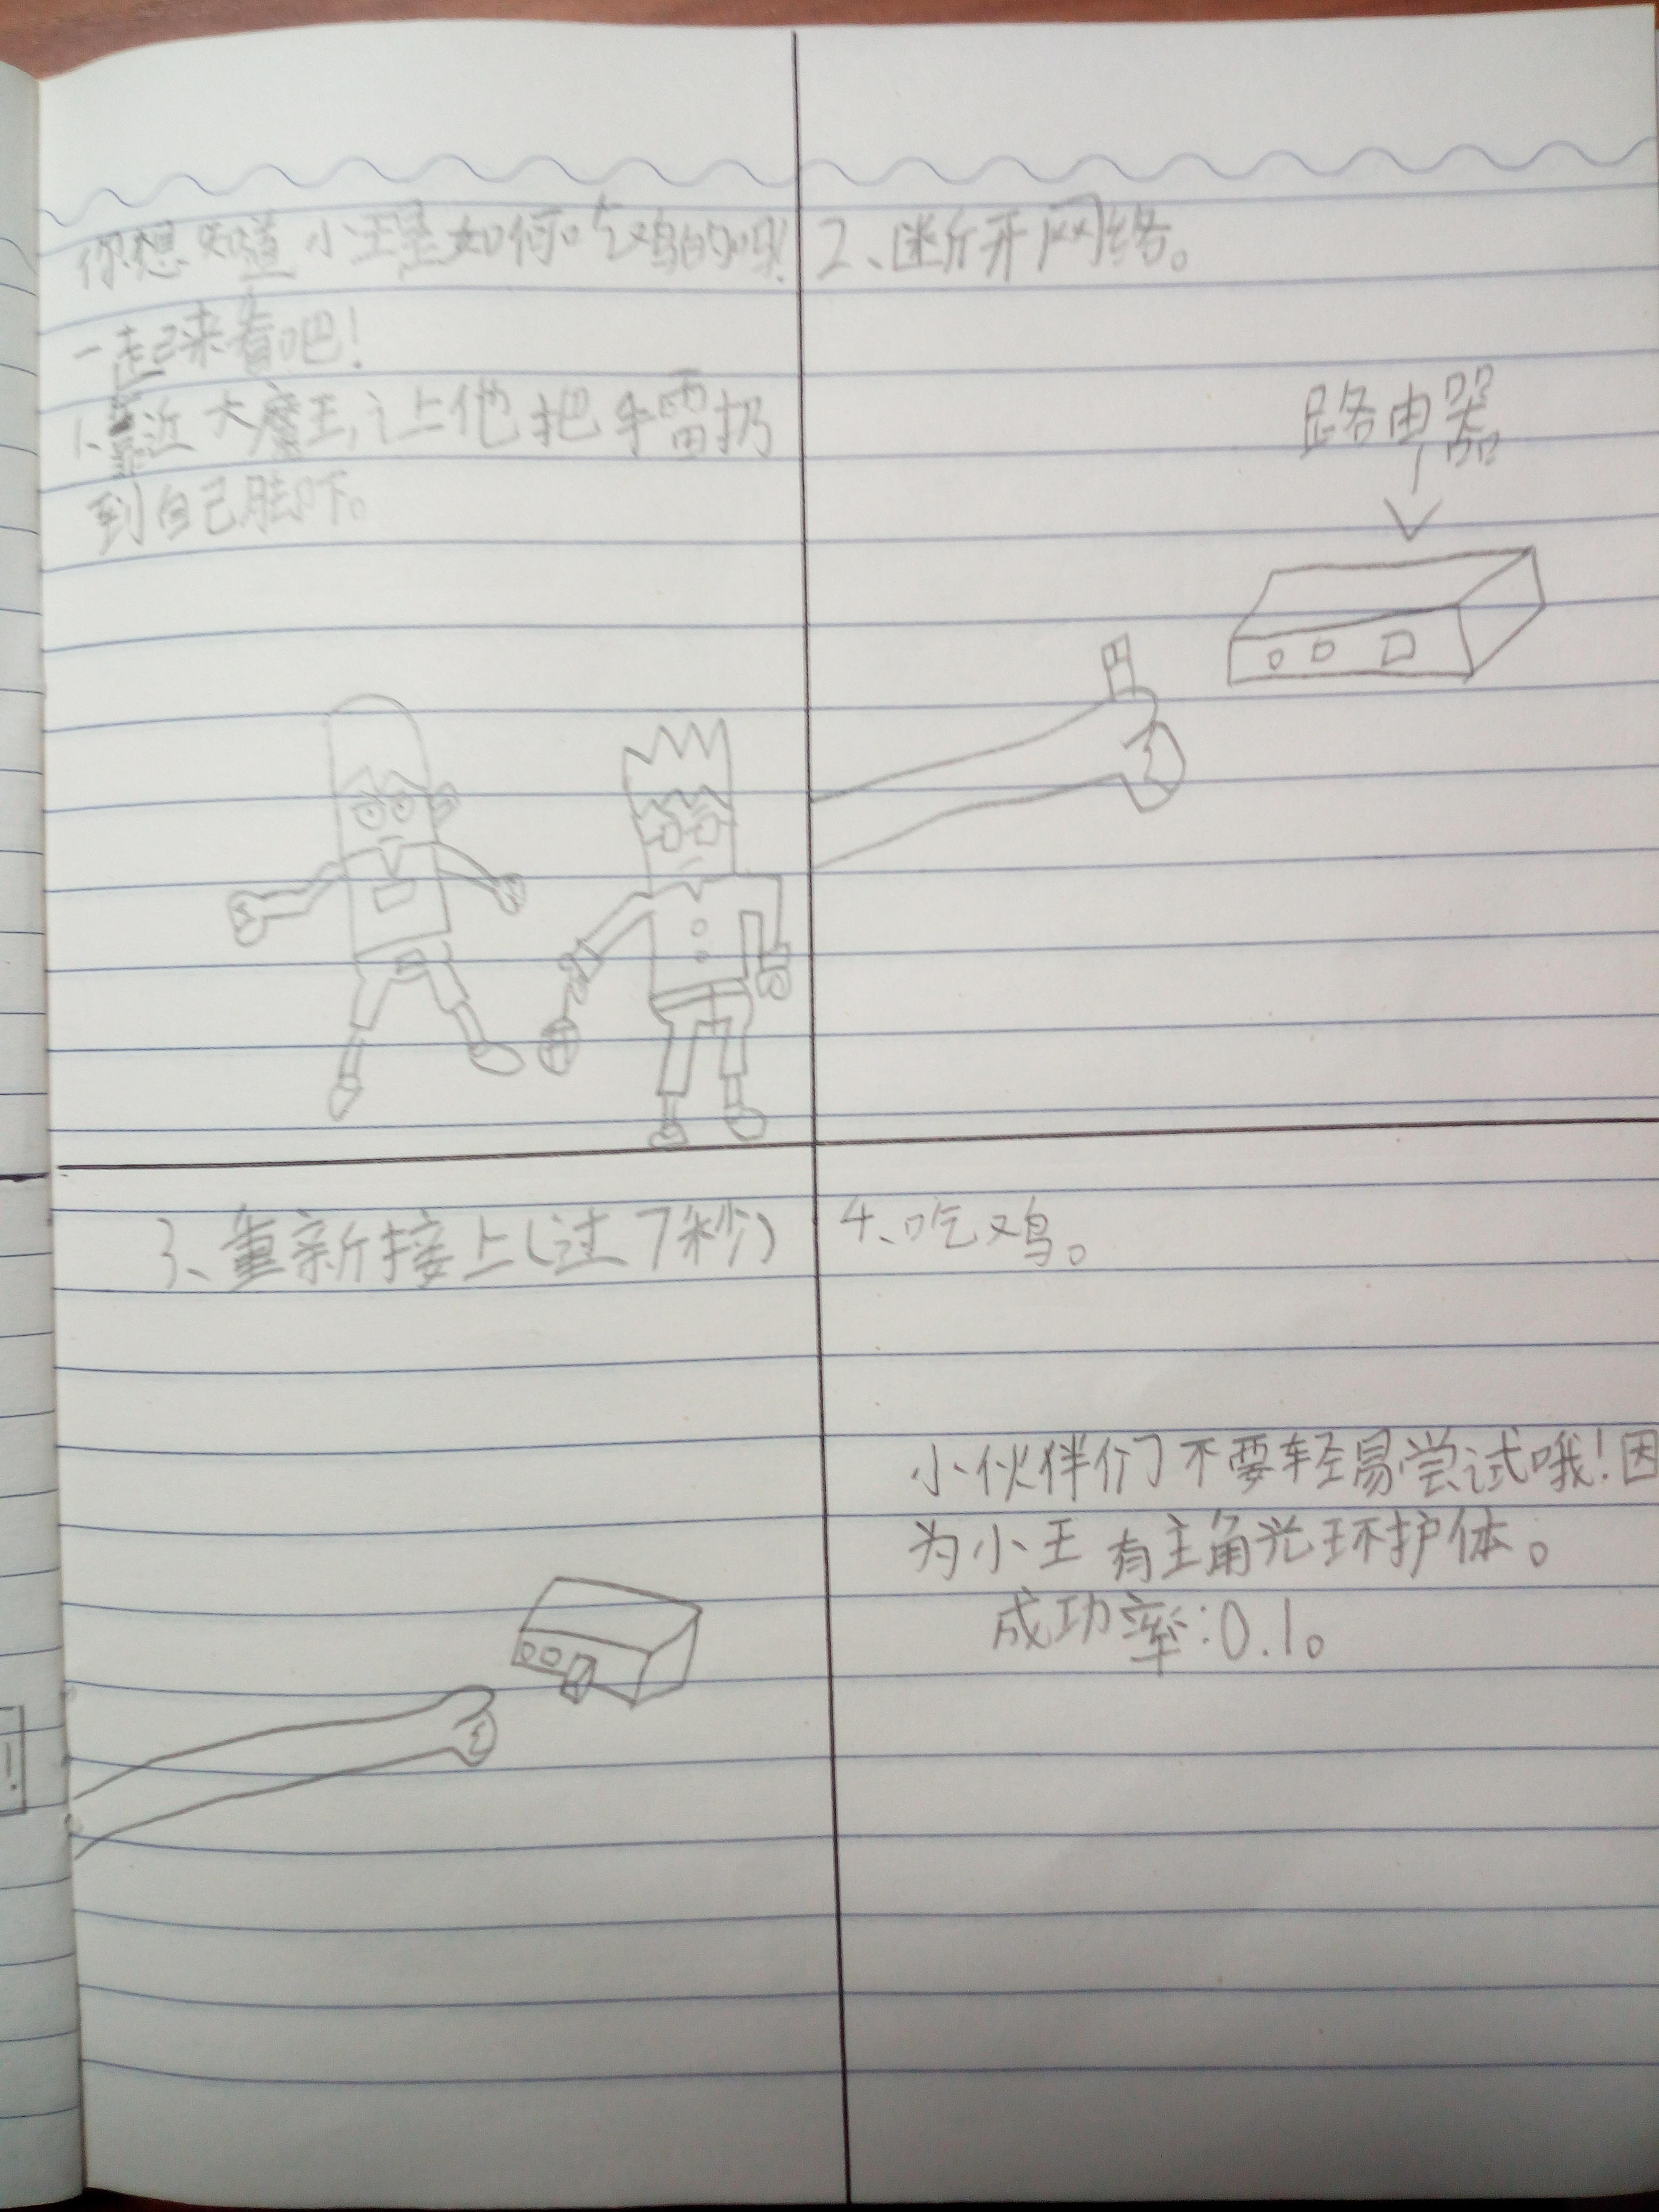 你想知道小王是如何吃鸡的吗!
一起来看吧!
1、靠近大魔王,让上他把手雷扔
到自己脚下。
2、断开网络。
路由器
3、重新接上(过7秒)
4、吃鸡。
小伙伴们不要轻易尝试哦!因
为小王有主角光环护体。
成功率:0.1。